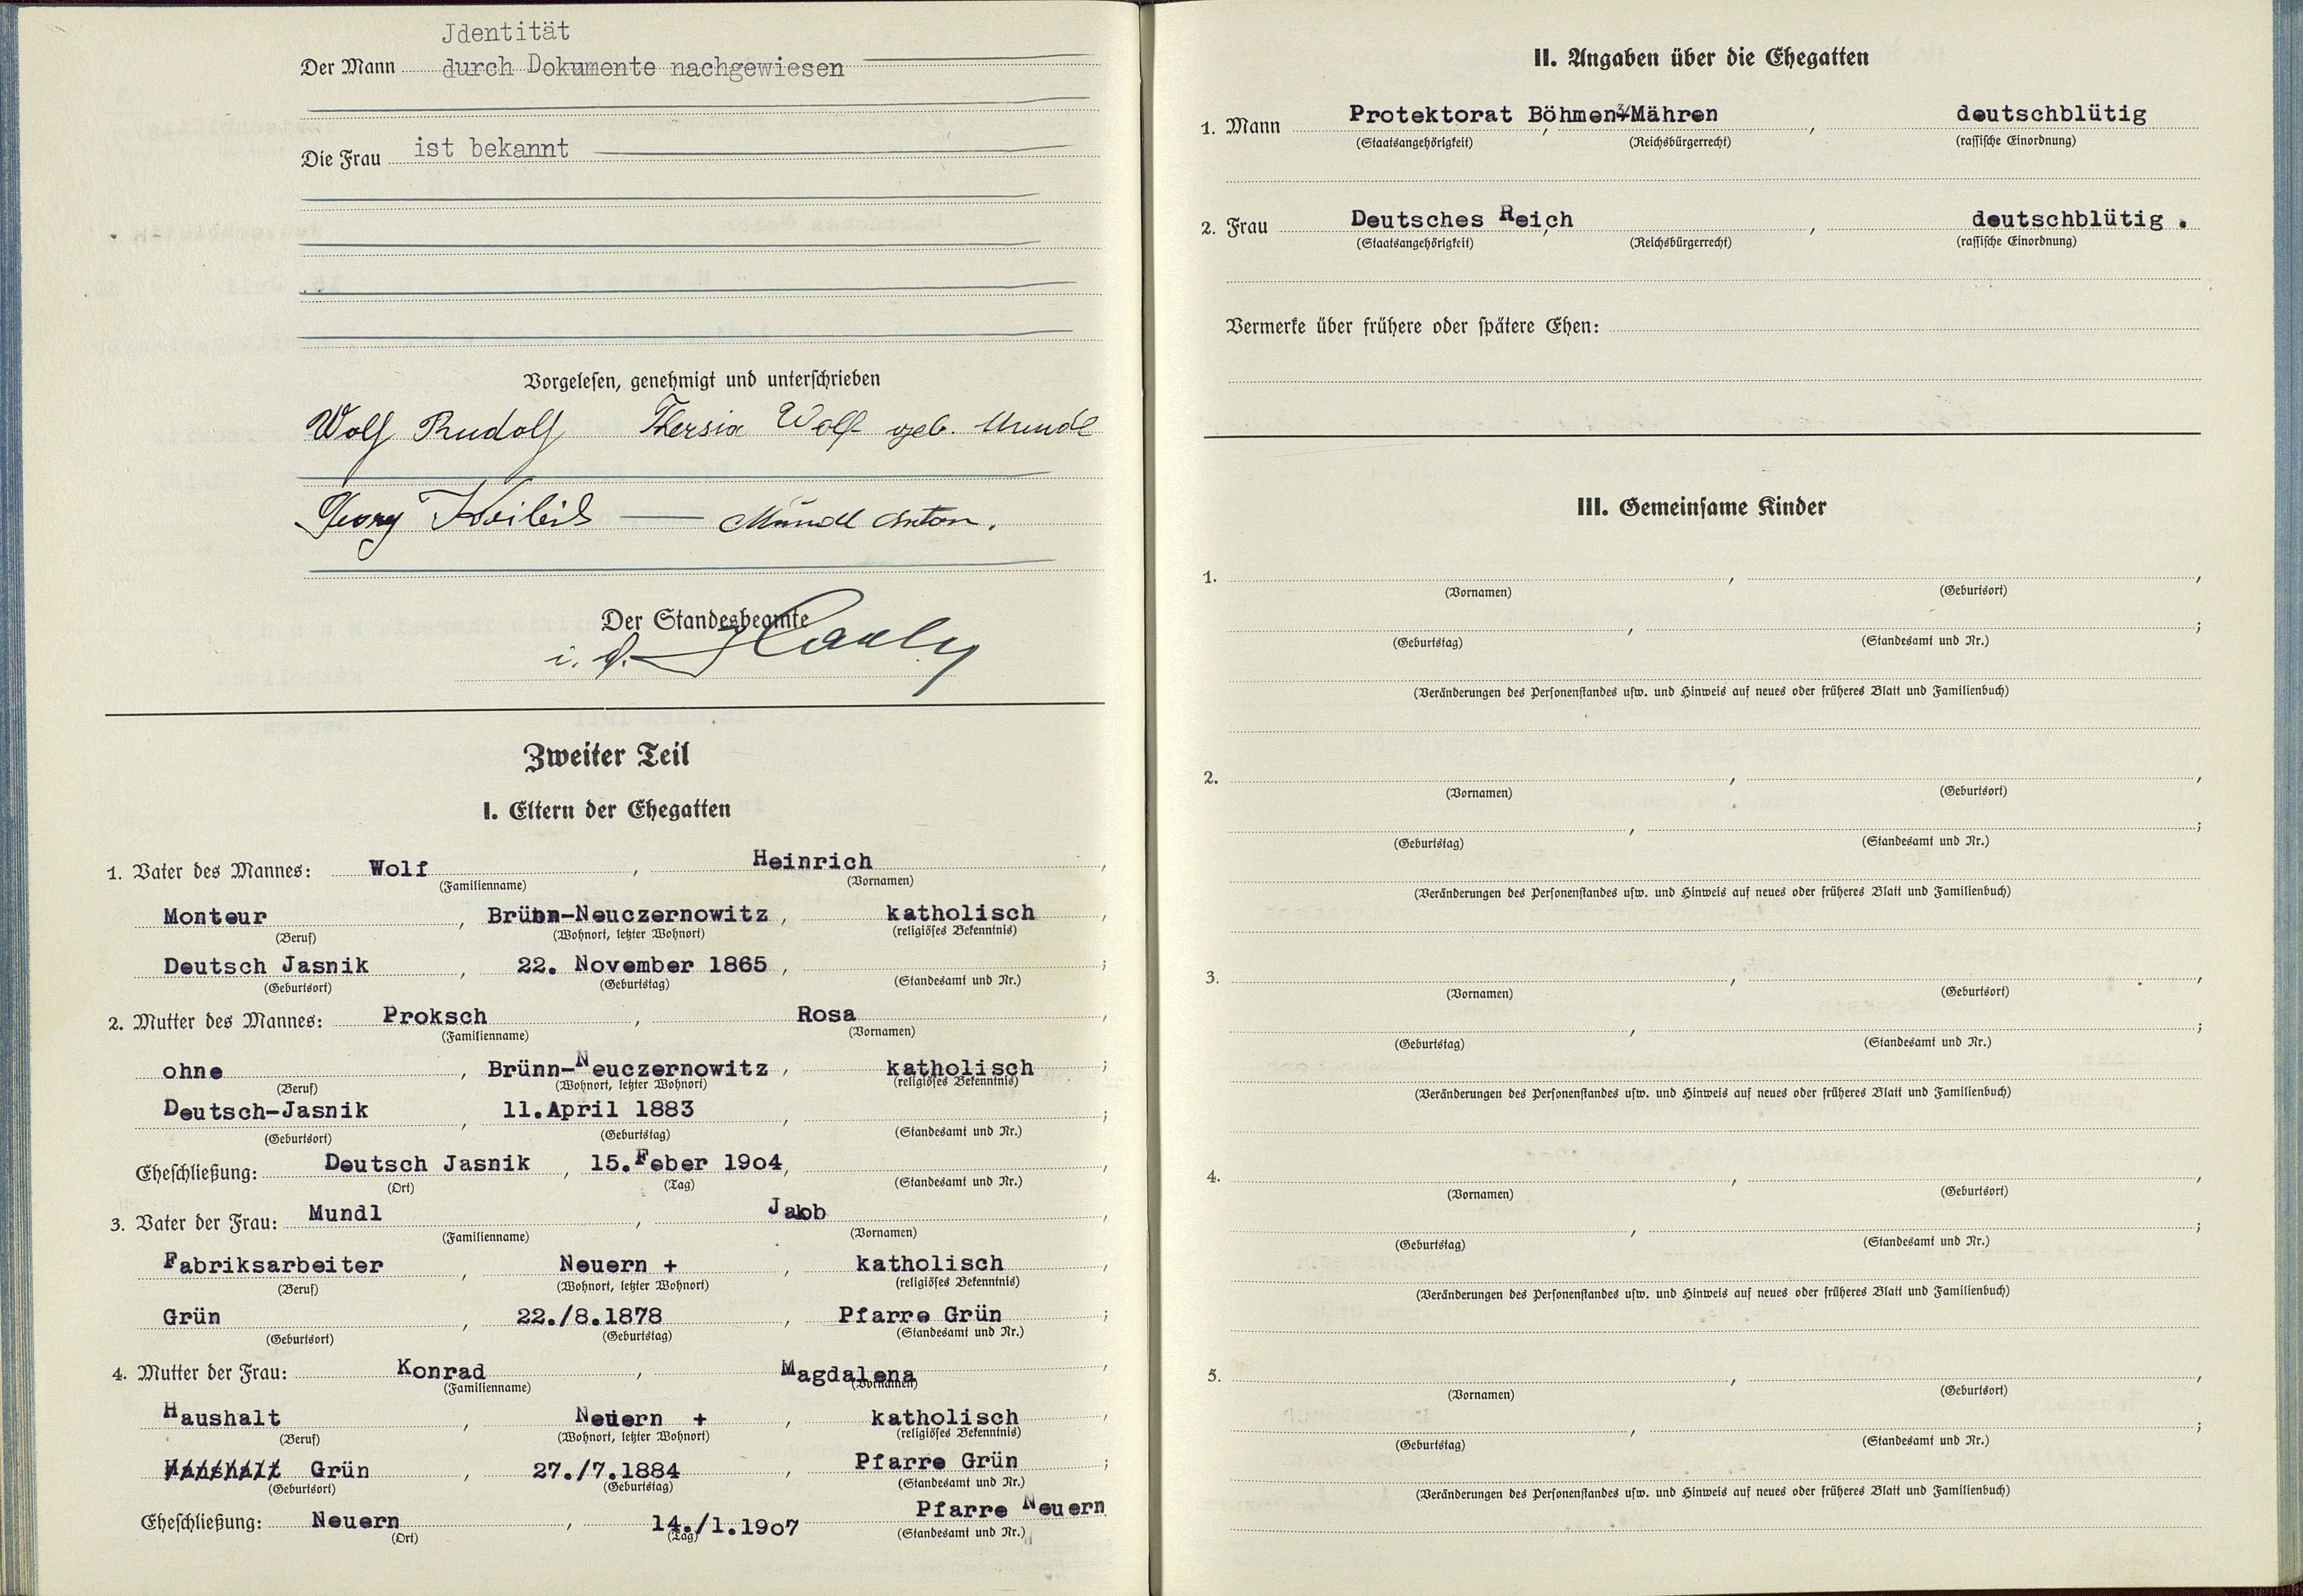 Jdentität
Der Mann durch Dokumente nachgewiesen
Die Frau ist bekannt
Vorgelesen, genehmigt und unterschrieben
Wolf Rudolf Thersia Wolf geb. Mundl
Georg Mündl Anton.
Der Standesbeamte
i. V.
Zweiter Teil
I. Eltern der Ehegatten
1. Vater des Mannes: Wolf, Heinrich,
(Familienname) (Vornamen)
Monteur, Brünn-Neuczernowitz, katholisch,
(Beruf) (Wohnort, letzter Wohnort) (religiöses Bekenntnis)
Deutsch Jasnik, 22. November 1865, ;
(Geburtsort) (Geburtstag) (Standesamt und Nr.)
2. Mutter des Mannes: Proksch, Rosa,
(Familienname) (Vornamen)
ohne, Brünn-Neuczernowitz, katholisch;
(Beruf) (Wohnort, letzter Wohnort) (religiöses Bekenntnis)
Deutsch-Jasnik, 11.April 1883, ;
(Geburtsort) (Geburtstag) (Standesamt und Nr.)
Eheschließung: Deutsch Jasnik, 15.Feber 19o4, ,
(Ort) (Tag) (Standesamt und Nr.)
3. Vater der Frau: Mundl, Jakob,
(Familienname) (Vornamen)
Fabriksarbeiter, Neuern +, katholisch,
(Beruf) (Wohnort, letzter Wohnort) (religiöses Bekenntnis)
Grün, 22./8.1878, Pfarre Grün;
(Geburtsort) (Geburtstag) (Standesamt und Nr.)
4. Mutter der Frau: Konrad, Magdalena,
(Familienname) (Vornamen)
Haushalt, Neuern +, katholisch,
(Beruf) (Wohnort, letzter Wohnort) (religiöses Bekenntnis)
Haushalt Grün, 27./7.1884, Pfarre Grün;
(Geburtsort) (Geburtstag) (Standesamt und Nr.)
Eheschließung: Neuern, 14./1.19o7 Pfarre Neuern
(Ort) (Tag) (Standesamt und Nr.)
II. Angaben über die Ehegatten
1. Mann Protektorat Böhmen Mähren, deutschblütig
(Staatsangehörigkeit) (Reichsbürgerrecht) (rassische Einordnung)
2. Frau Deutsches Reich, deutschblütig.
(Staatsangehörigkeit) (Reichsbürgerrecht) (rassische Einordnung)
Vermerke über frühere oder spätere Ehen:
III. Gemeinsame Kinder
1. , ,
(Vornamen) (Geburtsort)
, ;
(Geburtstag) (Standesamt und Nr.)
(Veränderungen des Personenstandes usw. und Hinweis auf neues oder früheres Blatt und Familienbuch)
2. , ,
(Vornamen) (Geburtsort)
, ;
(Geburtstag) (Standesamt und Nr.)
(Veränderungen des Personenstandes usw. und Hinweis auf neues oder früheres Blatt und Familienbuch)
3. , ,
(Vornamen) (Geburtsort)
, ;
(Geburtstag) (Standesamt und Nr.)
(Veränderungen des Personenstandes usw. und Hinweis auf neues oder früheres Blatt und Familienbuch)
4. , ,
(Vornamen) (Geburtsort)
, ;
(Geburtstag) (Standesamt und Nr.)
(Veränderungen des Personenstandes usw. und Hinweis auf neues oder früheres Blatt und Familienbuch)
5. , ,
(Vornamen) (Geburtsort)
, ;
(Geburtstag) (Standesamt und Nr.)
(Veränderungen des Personenstandes usw. und Hinweis auf neues oder früheres Blatt und Familienbuch)